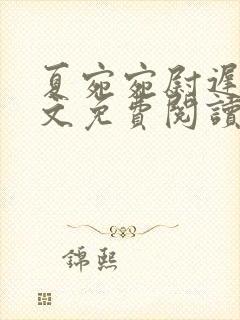 夏宛宛尉遲
文免費閱讀
錦熙